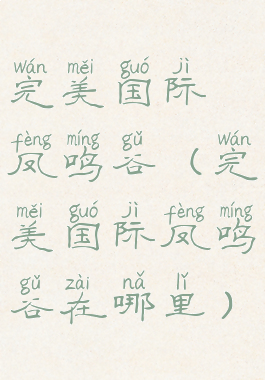 wán měi guó jì
完美国际
fèng míng gǔ wán
凤鸣谷（完
měi guó jì fèng míng
美国际凤鸣
gǔ zài nǎ lǐ
谷在哪里）